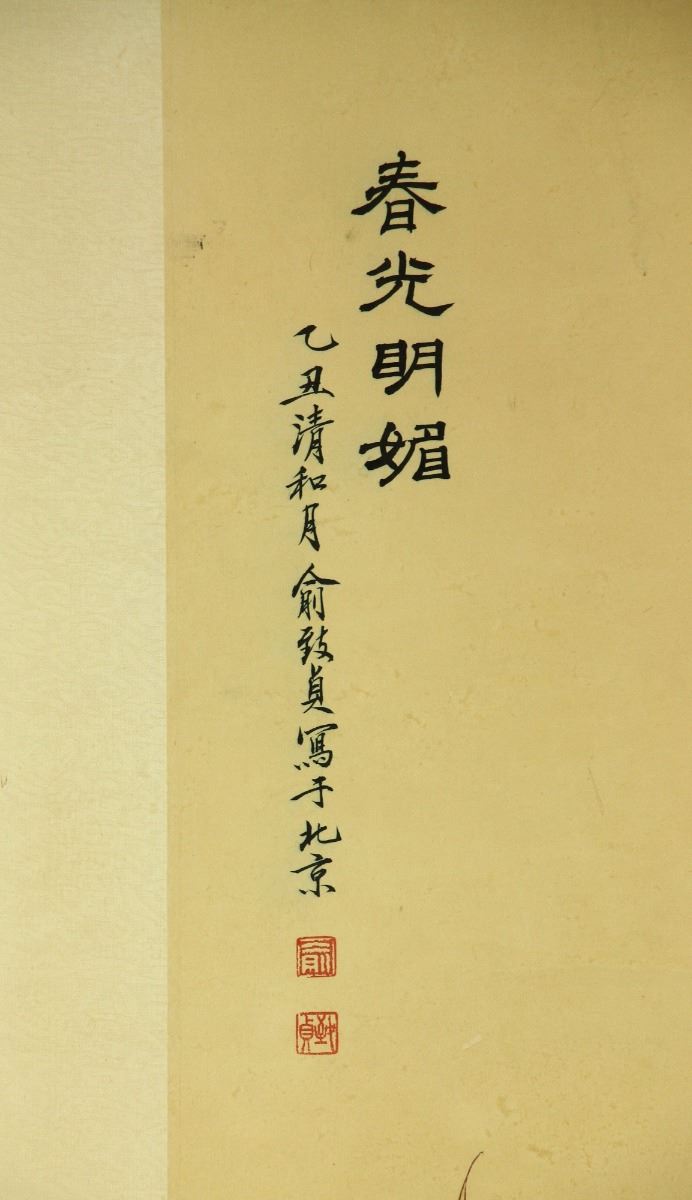 春光明媚
乙丑清和月俞致貞寫于北京
俞
致貞